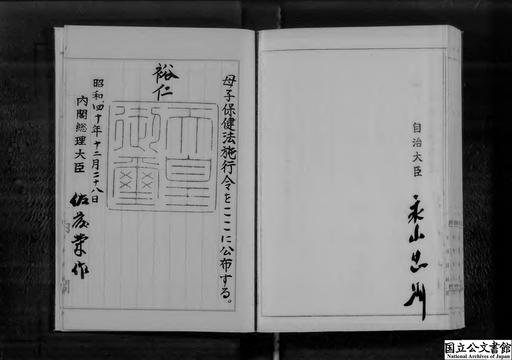 母子保健法施行令をここに公布する。
裕仁
天皇御璽
昭和四十年十二月二十八日
内閣総理大臣
佐藤榮作
自治大臣
永山忠則
国立公文書館
National Archives of Japan